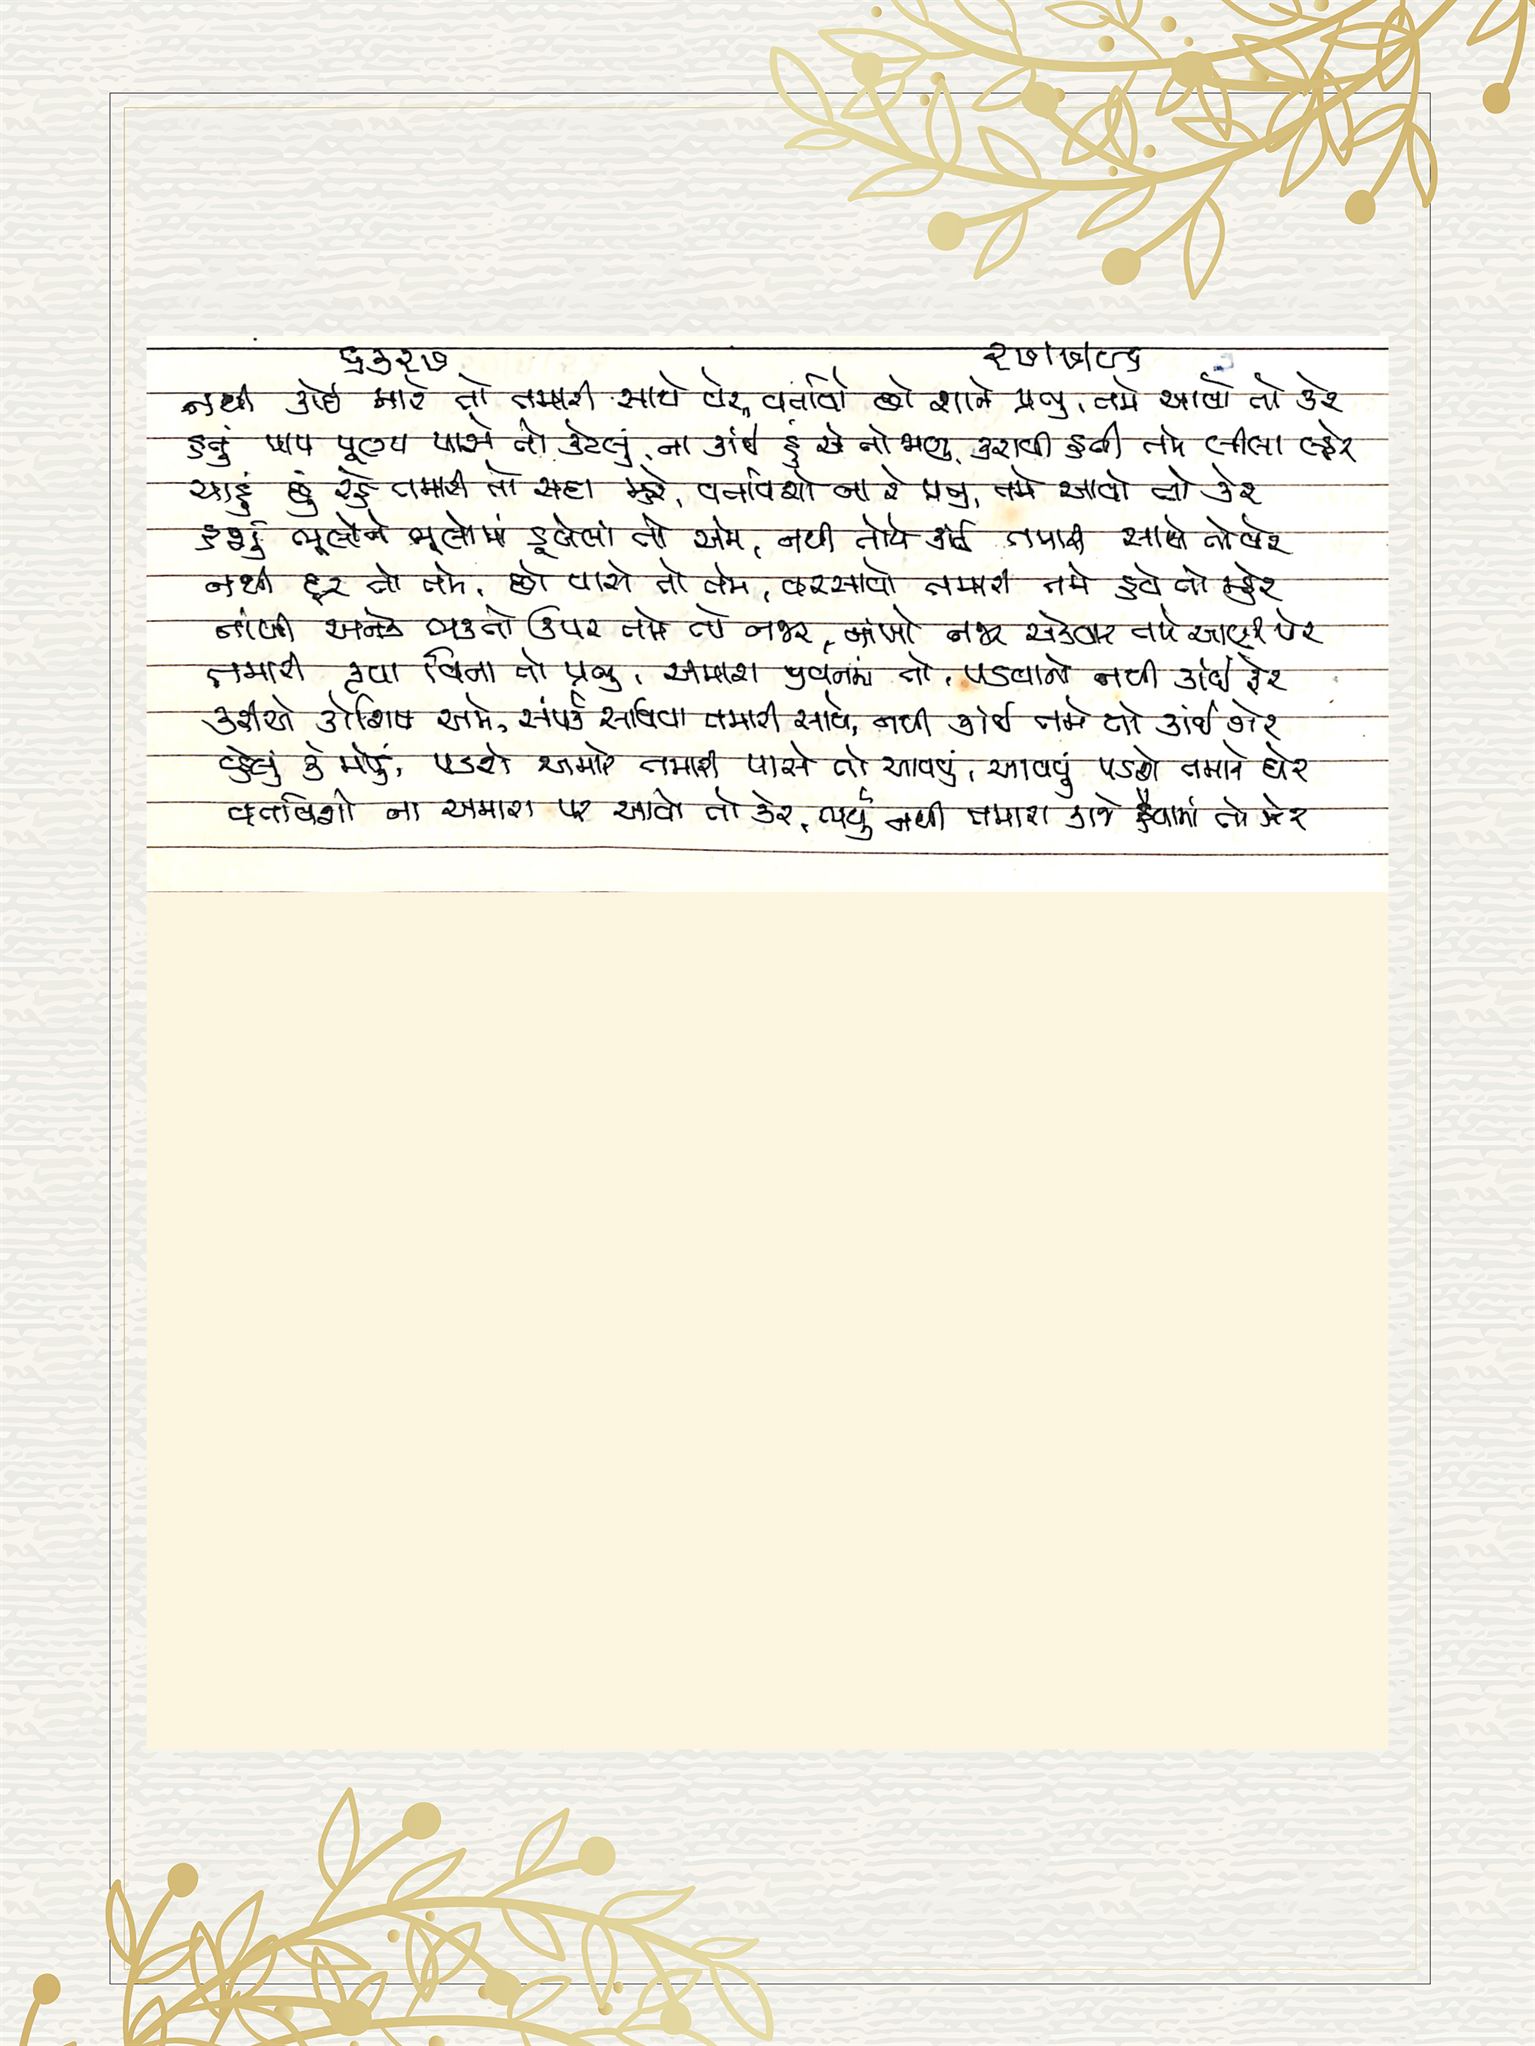 ૬૩૨૭ ૨૭/૭/૯૬
નથી કોઈ મારે તો તમારી સાથે વેર, વર્તાવો છો શાને પ્રભુ, તમે આવો તો કેર
હતું પાપ પૂણ્ય પાસે તો કેટલું, ના કાંઈ હું એ તો ભણ્યુ, કરાવી હતી તમે લીલા લ્હેર
ચાહું છું રહે તમારી તો સદા મ્હેર, વર્તાવશો ના રે પ્રભુ, તમે આવો તો કેર
હશું ભૂલોને ભૂલોમાં ડૂબેલા તો અમે, નથી તોયે કાંઈ તમારી સાથે તો વેર
નથી દૂર તો તમે, છો પાસે તો તમે, વરસાવો તમારી તમે હવે તો મ્હેર
નાંખી અનેક ભક્તો ઉપર તમે તો નજર, નાંખો નજર એકવાર તમે આણી પેર
તમારી કૃપા વિના તો પ્રભુ, અમારા જીવનમાં તો, પડવાનો નથી કાંઈ ફેર
કરીએ કોશિષ અમે, સંપર્ક સાધવા તમારી સાથે, નથી કોઈ તમે તો કાંઈ ગેર
વહેલું કે મોડું, પડશે અમારે તમારી પાસે તો આવવું, આવવું પડશે તમારે ઘેર
વર્તાવશો ના અમારા પર આવો તો કેર, ભર્યું નથી તમારા કાજે હૈયામાં તો ઝેર